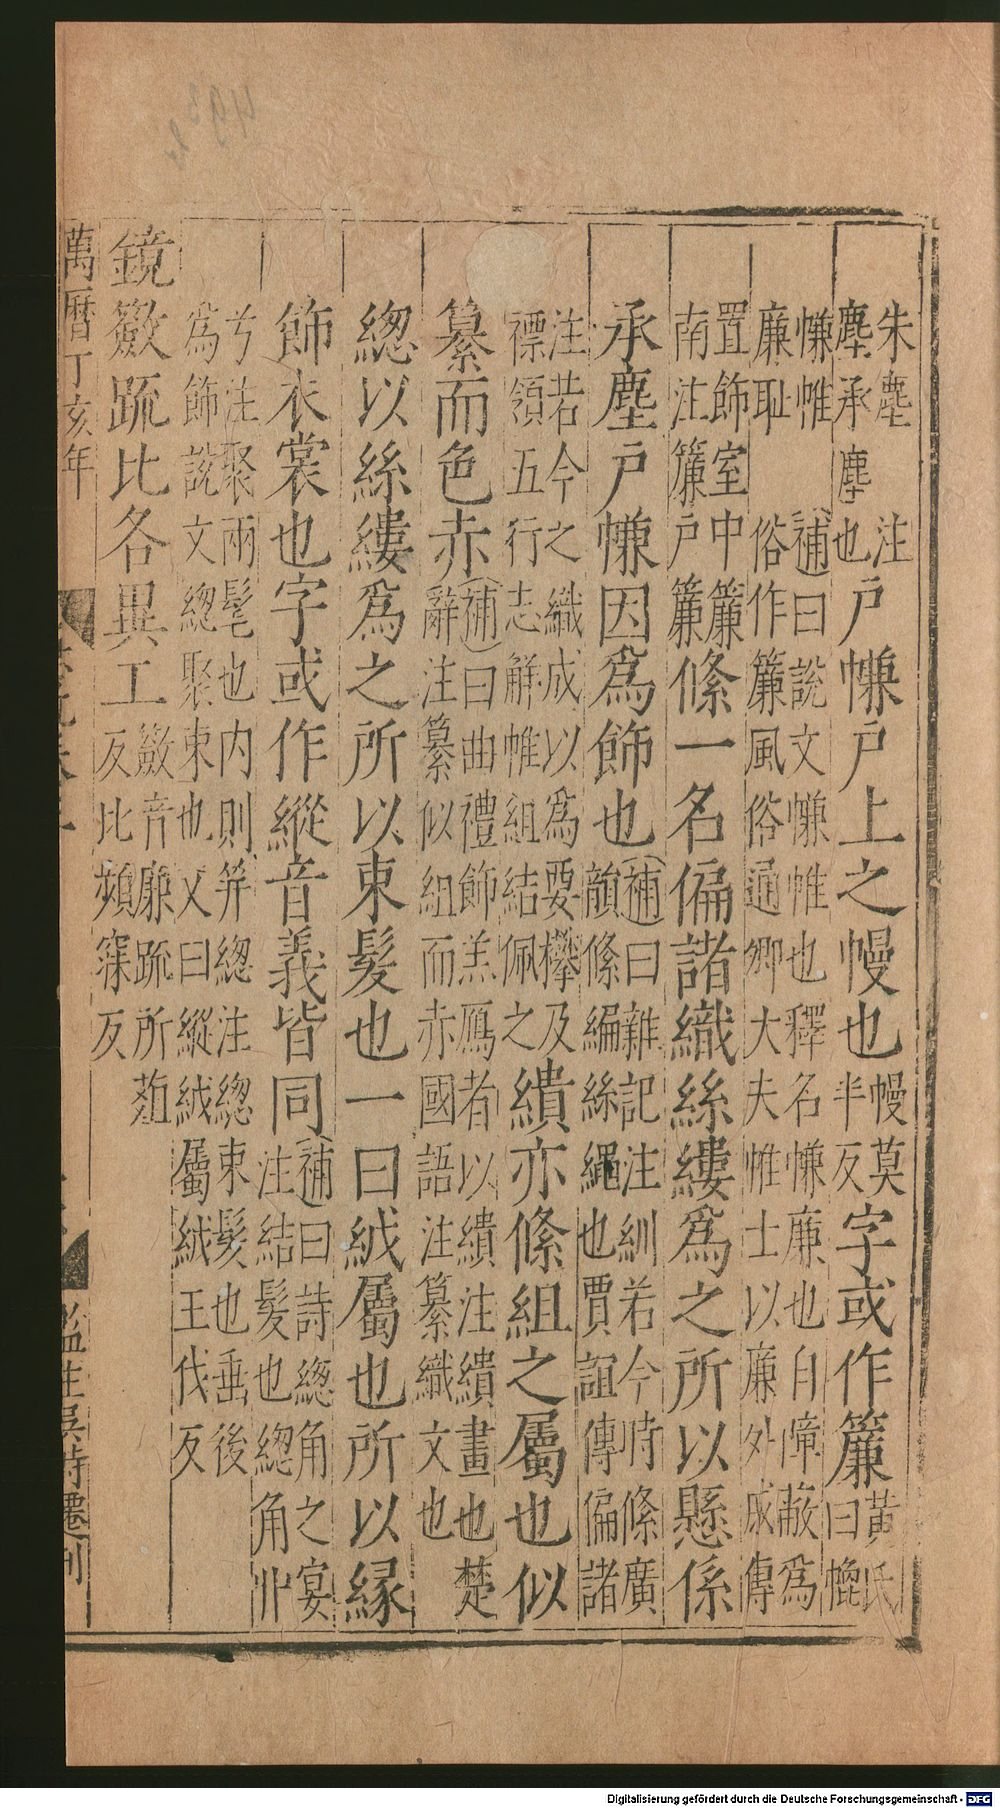 朱塵注
塵承塵也戶㡘戶上之幔也幔莫半反字或作簾黃氏曰㡘
㡘帷補曰說文㡘帷也釋名㡘廉也自障蔽為
廉恥俗作簾風俗通卿大夫帷士以廉外戚傳
置飾室中簾
南注簾戶簾絛一名偏諸織絲縷爲之所以懸係
承塵戶㡘因爲飾也補曰雜記注紃若今時絛廣
顏絛編絲繩也賈誼傳偏諸
注若今之織成以為要襻及
褾領五行志解帷組結佩之繢亦絛組之屬也似
纂而色赤補曰曲禮飾羔鴈者以繢注繢畫也楚
辭注纂似組而赤國語注纂織文也
總以絲縷爲之所以束髮也一曰㲼屬也所以緣
飾衣裳也字或作縱音義皆同補曰詩總角之宴
注結髮也總角丱
兮注聚兩髦也内則笄總注總束髮也垂後
為飾說文總聚束也又曰縱絨屬絨王伐反
鏡籢疏比各異工籢音廉疏所葅
反比頻寐反
萬曆丁亥年
吳時遷刊
Digitalisierung gefördert durch die Deutsche Forschungsgemeinschaft - DFG